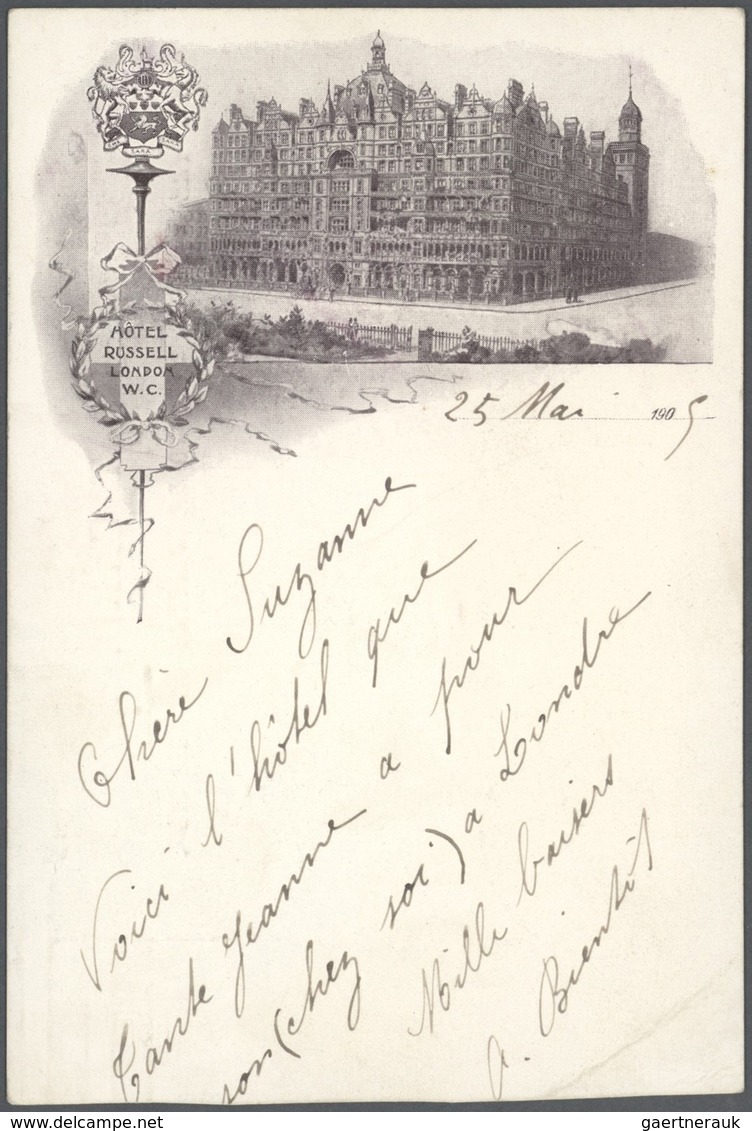 SARA
HÔTEL
RUSSELL
LONDON
W.C.
25 Mai 1905
Chère Suzanne
Voici l'hôtel que
Tante Jeanne a pour
son (chez soi) a Londre
Mille baisers
A. Bientôt
gaertnerauk